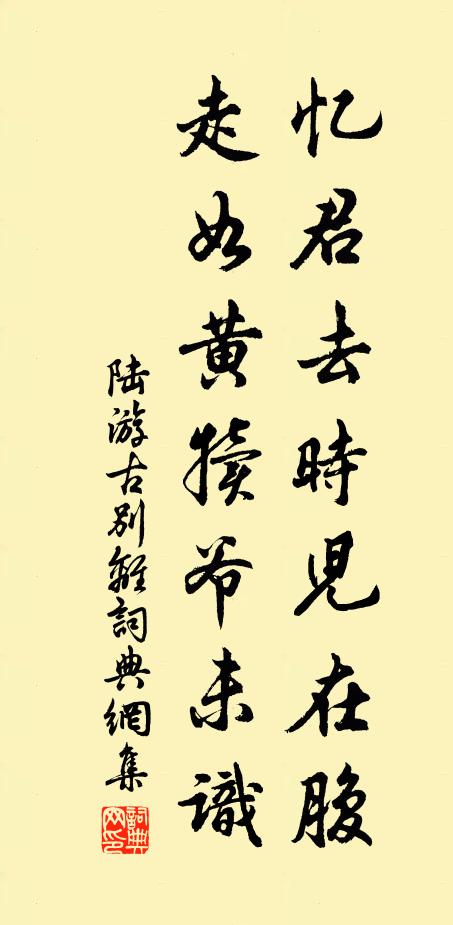 忆君去時児在腹
走如黄犢爷未識
陆游古别離詞典網集
詞典網印